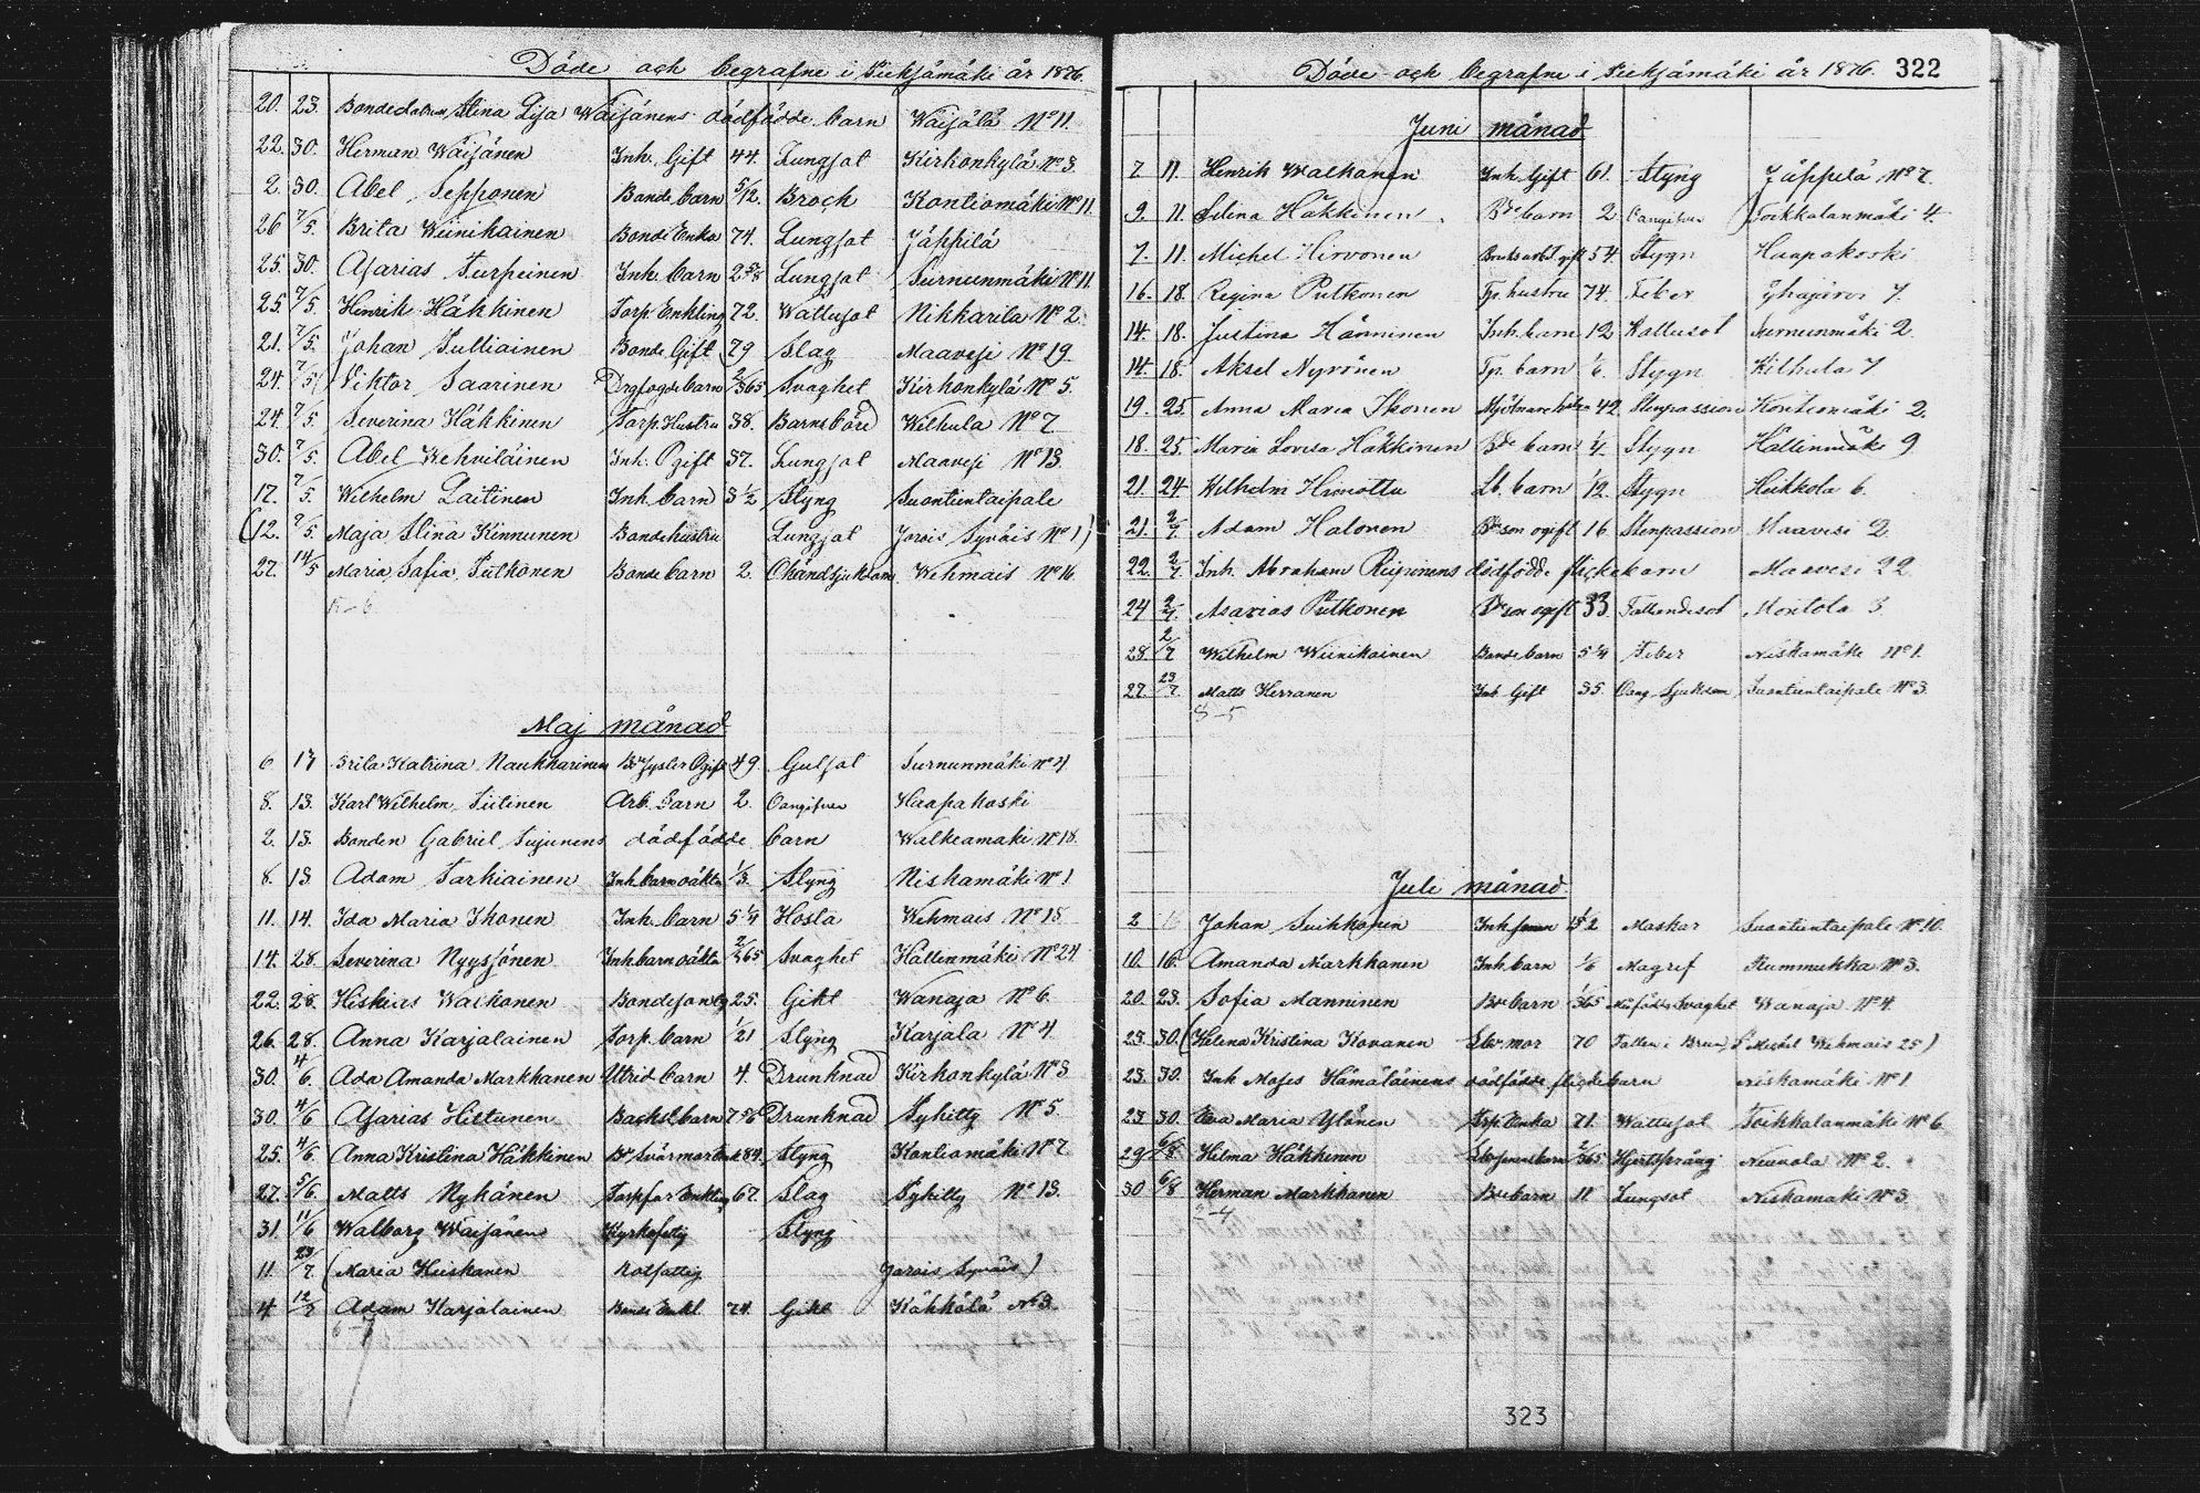 Döde och begrafne i Pieksämäki år 1876.
20. 23. Bondedottren Stina Lisa Wäisänens dödfödde barn Wäisälä No 11.
22. 30. Herman Wäisänen Inh. Gift 44. Lungsot Kirkonkylä No 3.
2. 30. Abel Sepponen Bonde barn 5/12. Brock Kontiomäki No 11
26 7/5. Brita Wiinikainen Bonde Enka 74. Lungsot Jäppilä
25. 30. Asarias Turpeinen Inh. barn 2 Lungsot Surnunmäki No 11.
25. 7/5. Henrik Häkkinen Torp. Enkling 72. Wattusot Nikkarila No 2.
21. 7/5. Johan Pulliainen Bonde Gift 79 Slag Maavesi No 19.
24. 7/5 Viktor Saarinen barn 2/365 Svaghet Kirkonkylä No 5.
24. 7/5. Severina Häkkinen Torp. Hustru 38. Barnsbörd Wilhula No 7
30. 7/5. Abel Wehviläinen Inh. Ogift 37. Lungsot Maavesi No 13
17. 7/5. Wilhelm Laitinen Inh. barn 3 1/2 Styng Suontientaipale
(12. 7/5. Maja Stina Kinnunen Bondehustru Lungsot Jorois Syväis No 1)
27. 14/5 Maria Sofia Putkonen Bonde barn 2. Okänd sjukdom Wehmais No 16.
Maj månad
6 17 Brita Katrina Naukkarinen Ogift 49. Gulsot Surnunmäki No 4
8. 13. Karl Wilhelm Siitinen Arb. Barn 2. Oangifven Haapakoski
2. 13. Bonden Gabriel Suhonens dödfödde barn Walkeamäki No 18.
8. 13 Adam Tarkiainen Inh. barn oäkta 1/3. Styng Niskamäki No 1
11. 14. Ida Maria Ikonen Inh. barn 5 1/4 Hosta Wehmais No 18
14. 28. Severina Nyyssönen Inh. barn oäkta 2/365 Svaghet Hällinmäki No 24
22. 28. Hiskias Walkonen Bondeson 25. Gikt Wanaja No 6.
26. 28. Anna Karjalainen Torp. barn 1/21 Styng Karjala No 4
30. 4/6. Ada Amanda Markkanen barn 4. Drunknad Kirkonkylä No 3
30. 4/6 Asarias Hiltunen barn 7 5/6 Drunknad Pyhitty No 5
25. 4/6 Anna Kristina Häkkinen 84. Styng Kontiomäki No 7
27. 5/6. Matts Nyhänen Torpfar Enkling 67. Slag Pyhitty No 13.
31. 11/6 Walborg Wäisänen Styng
11. 23/7. (Maria Heiskanen Rotfattig Jorois Syväis)
4 12/7 Adam Karjalainen Bonde Enkl. 74. Gikt Kähkölä No 3.
6-7
Döde och begrafne i Pieksämäki år 1876. 322
Juni månad
7 11. Henrik Walkonen Inh. Gift 61. Styng Jäppilä No 7.
9. 11. Selina Häkkinen barn 2 Oangifven Toikkalanmäki 4.
7. 11. Michel Hirvonen gift 54 Stygn Haapakoski
16. 18. Regina Putkonen Tp. hustru 74 Feber 7.
14. 18. Justina Hänninen Inh. barn 12 Wattusot Surnunmäki 2.
14. 18. Aksel Nyrönen Tp. barn 1/6. Stygn Wilhula 7
19. 25. Anna Maria Ikonen 42 Stenpassion Kontiomäki 2.
18. 25. Maria Lovisa Häkkinen barn 1/4 Stygn Hällinmäki 9
21. 24. Wilhelm Himottu barn 1/12. Stygn Heikkola 6.
21. 2/7. Adam Halonen son ogift 16 Stenpassion Maavesi 2.
22. 2/7 Inh. Abraham Reijonens dödfödde flickebarn Maavesi 22
24 2/7. Asarias Putkonen son ogift 33. Fallandesot Montola 3.
28. 2/7 Wilhelm Wiinikainen Bonde barn 5 1/4 Feber Niskamäki No 1.
27. 23/7. Matts Herranen Inh. Gift 35. Oang. Sjukdom Suontientaipale No 3.
8-5
Juli månad
2 16 Johan Suihkonen Inh. Maskar Suontientaipale No 10.
10. 16. Amanda Markkanen Inh. barn 1/6 Magref Rummukka No 3.
20. 23. Sofia Manninen barn 1/365 Svaghet Wanaja No 4.
23. 30. (Helena Kristina Kovanen mor 70 Fallen i Brunn St Michel Wehmais 25)
23. 30. Inh. Moses Hämäläinens dödfödde flickebarn Niskamäki No 1
23 30. Eva Maria Ylönen Torp. Enka 71. Wattusot Toikkalanmäki No 6
29 6/8. Hilma Häkkinen 2/365 Hjertsprång Neuvola No 2.
30 6/8 Herman Markkanen barn 11 Lungsot Niskamäki No 3
323